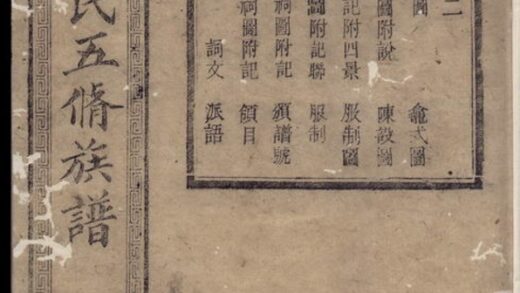 二
圖 龕式圖
圖附說 陳設圖
記附四景 服制圖
圖附記聯 服制
祠圖附記 頒譜號
祠圖附記 領目
詞文 派語
氏五脩族譜